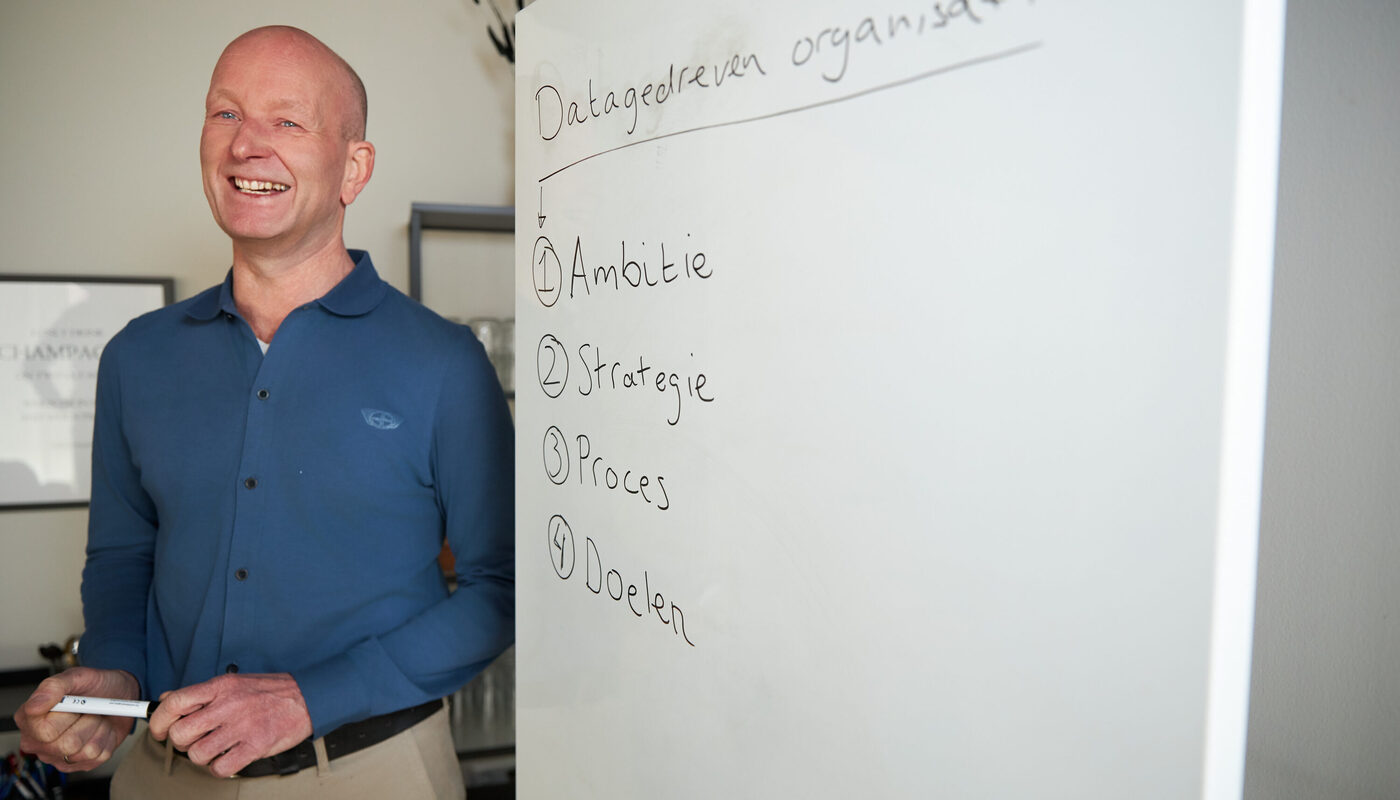 Datagedreven organisa
1 Ambitie
2 Strategie
3 Proces
4 Doelen
CHAMPAG